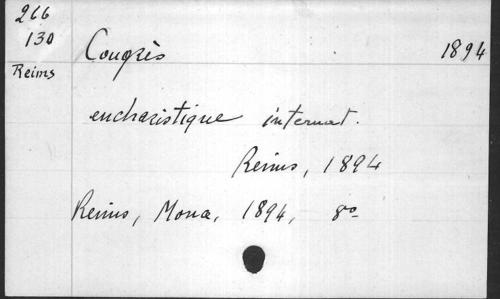 266
130
Reims
Congrès 1894
eucharistique internat.
Reims, 1894
Reims, Mona, 1894, 8º